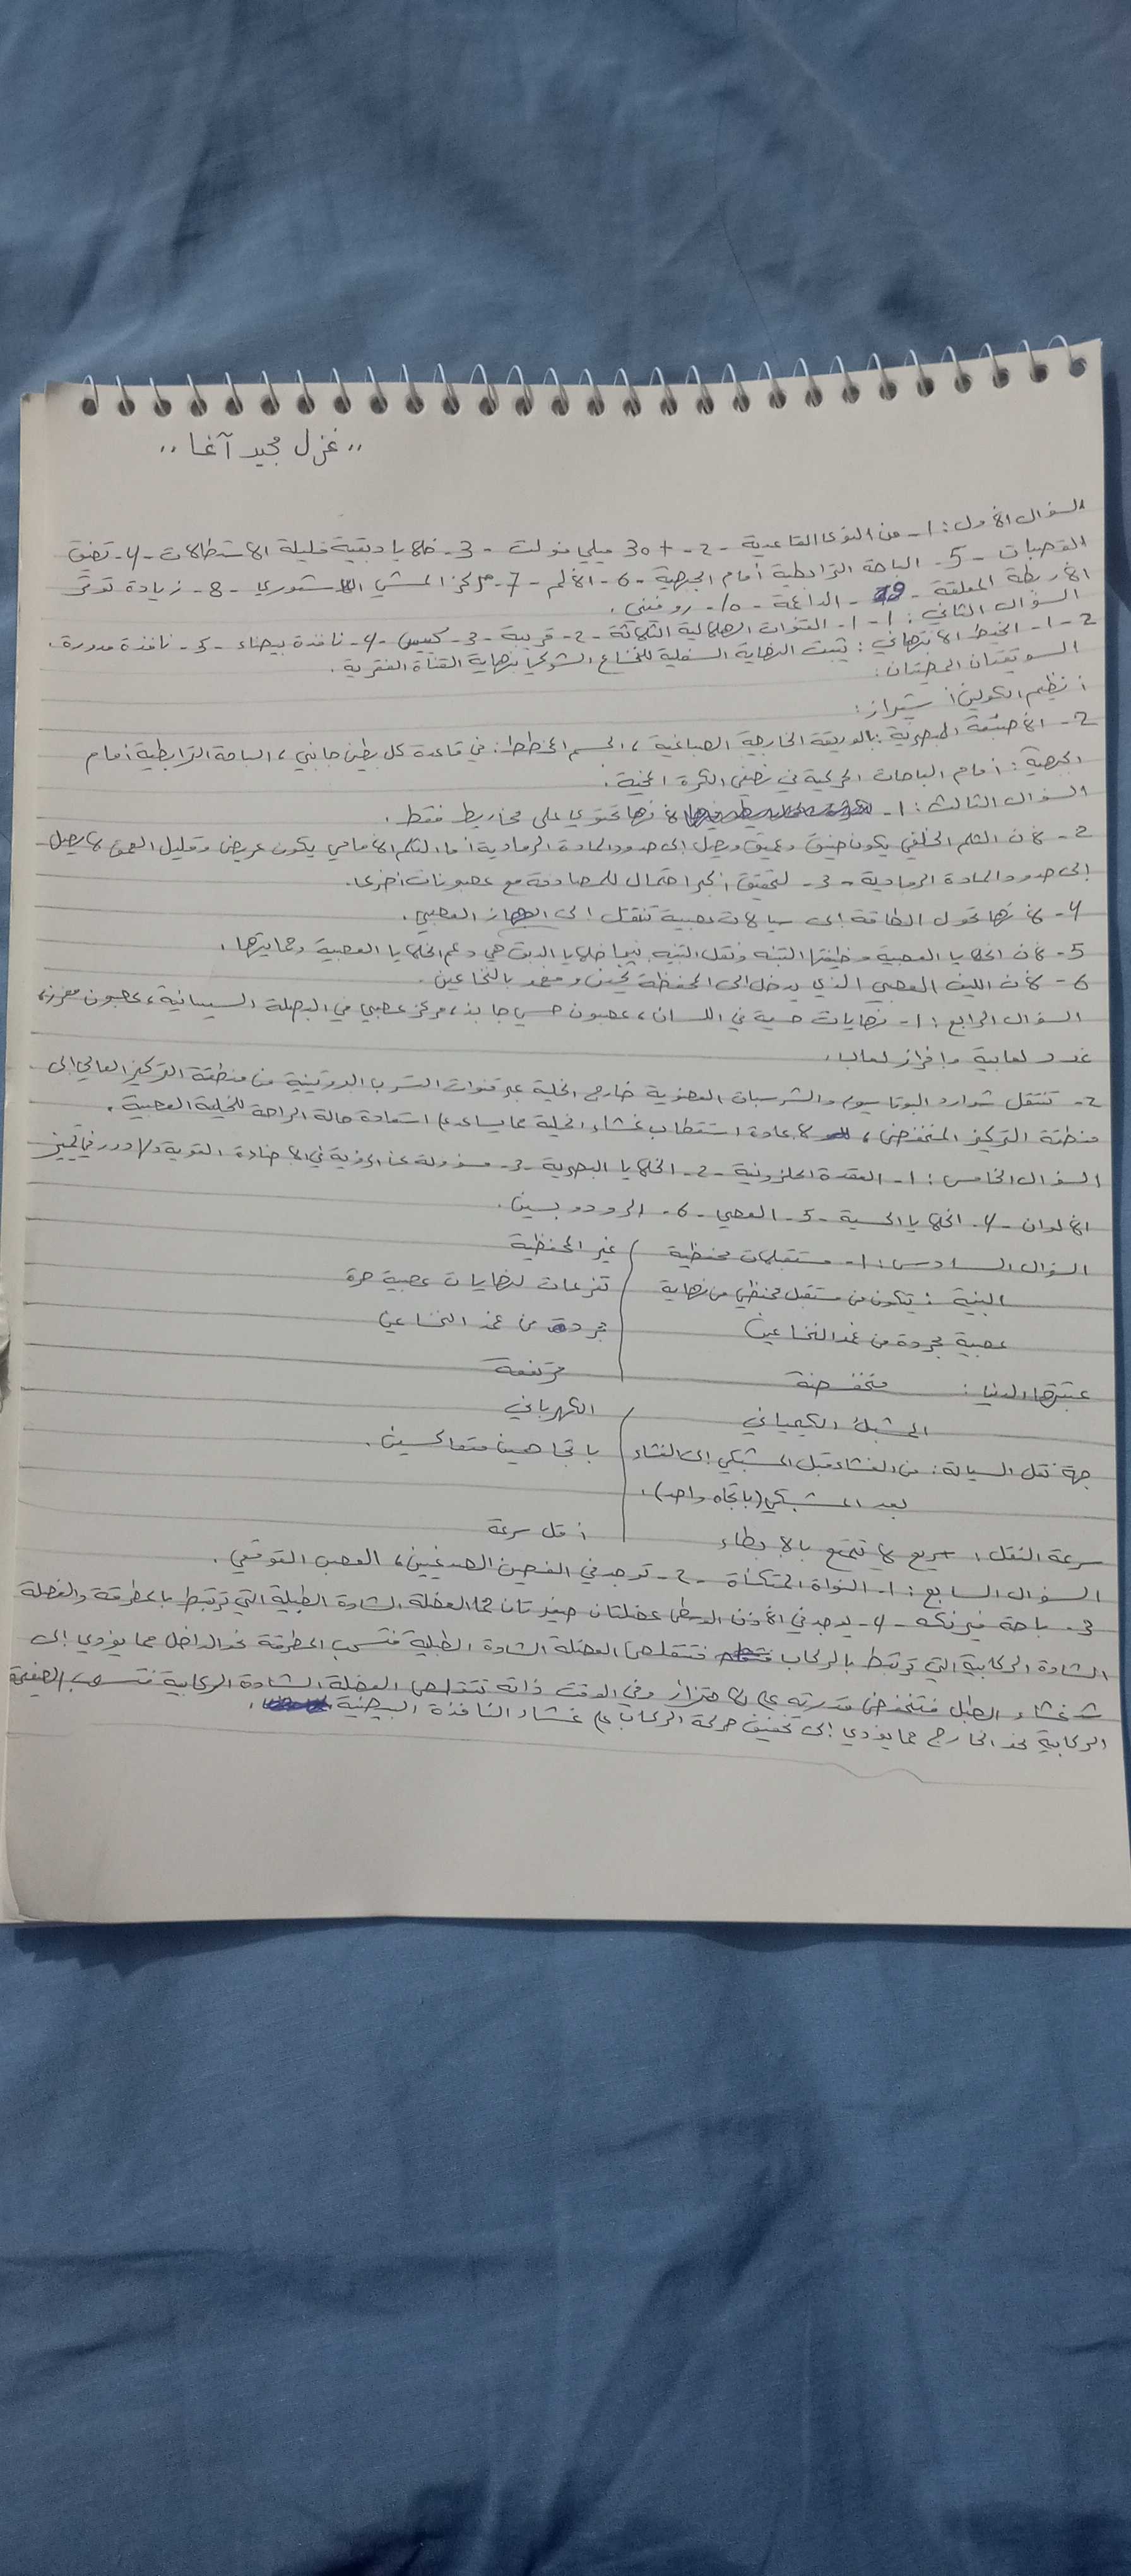 ,, غزل مجيد آغا ,,
السؤال الأول: 1- من النوى القاعدية - 2- +30 ميلي فولت - 3- خلايا دبقية قليلة الاستطالات - 4- تضيق
القصبات - 5- الباحة الترابطية أمام الجبهية - 6- الألم - 7- مركز المشي اللاشعوري - 8- زيادة توتر
الأربطة المعلقة - 9- الداعمة - 10- روفيني.
السؤال الثاني: 1- 1- القنوات الهلالية الثلاثة - 2- قريبة - 3- كييس - 4- نافذة بيضاء - 5- نافذة مدورة.
2- 1- الخيط الانتهائي: تثبت النهاية السفلية للنخاع الشوكي بنهاية القناة الفقرية.
السويقتان المخيتان:
أنظيم الكولين أستيراز:
2- الأصبغة البصرية: بالوريقة الخارجية الصباغية، الجسم المخطط: في قاعدة كل بطين جانبي، الباحة الترابطية أمام
الجبهية: أمام الباحات الحركية في نصفي الكرة المخية.
السؤال الثالث: 1- لأنها تحتوي على مخاريط فقط.
2- لأن الثلم الخلفي يكون ضيق وعميق ويصل إلى حدود المادة الرمادية أما الثلم الأمامي يكون عريض وقليل العمق لا يصل
إلى حدود المادة الرمادية - 3- لتحقيق أكبر احتمال للمصادفة مع عصبونات أخرى.
4- لأنها تحول الطاقة إلى سيالات عصبية تنتقل إلى الجهاز العصبي.
5- لأن الخلايا العصبية وظيفتها التنبه ونقل التنبه بينما خلايا الدبق هي دعم الخلايا العصبية وحمايتها.
6- لأن الليف العصبي الذي يدخل إلى المحفظة ثخين ومغمد بالنخاعين.
السؤال الرابع: 1- نهايات حسية في اللسان، عصبون حسي جابذ، مركز عصبي في البصلة السيسائية، عصبون مفرز،
غدد لعابية وإفراز لعاب.
2- تنتقل شوارد البوتاسيوم والشرسبات العضوية خارج الخلية عبر قنوات التسرب البروتينية من منطقة التركيز العالي إلى
منطقة التركيز المنخفض، لإعادة استقطاب غشاء الخلية مما يساعد على استعادة حالة الراحة للخلية العصبية.
السؤال الخامس: 1- العقدة الحلزونية - 2- الخلايا البصرية - 3- مسؤولة عن الرؤية في الإضاءة القوية ولا دور في تمييز
الألوان - 4- الخلايا الحسية - 5- العصي - 6- الرودوبسين.
السؤال السادس: 1- مستقبلات محفظية / غير المحفظية
البنية: يتكون من مستقبل محفظي من نهاية / تفرعات لنهايات عصبية حرة
عصبية مجردة من غمد النخاعين / مجردة من غمد النخاعين
عتبتها الدنيا: منخفضة / مرتفعة
المشبك الكيميائي / الكهربائي
جهة نقل السيالة: من الغشاء قبل المشبكي إلى الغشاء / باتجاهين متعاكسين.
بعد المشبكي (باتجاه واحد).
سرعة النقل: سريع لا يتمتع بالإبطاء / أقل سرعة
السؤال السابع: 1- النواة المتكأة - 2- توجد في الفصين الصدغيين، العصب القوقعي.
3- باحة فيرنكه - 4- يوجد في الأذن الوسطى عضلتان صغيرتان هما العضلة الشادة الطبلية التي ترتبط بالمطرقة والعضلة
الشادة الركابية التي ترتبط بالركاب فتتقلص العضلة الشادة الطبلية فتسحب المطرقة نحو الداخل مما يؤدي إلى
شد غشاء الطبل فتنخفض قدرته على الاهتزاز وفي الوقت ذاته تتقلص العضلة الشادة الركابية فتسحب الصفيحة
الركابية نحو الخارج مما يؤدي إلى تخفيف حركة الركاب على غشاء النافذة البيضية.